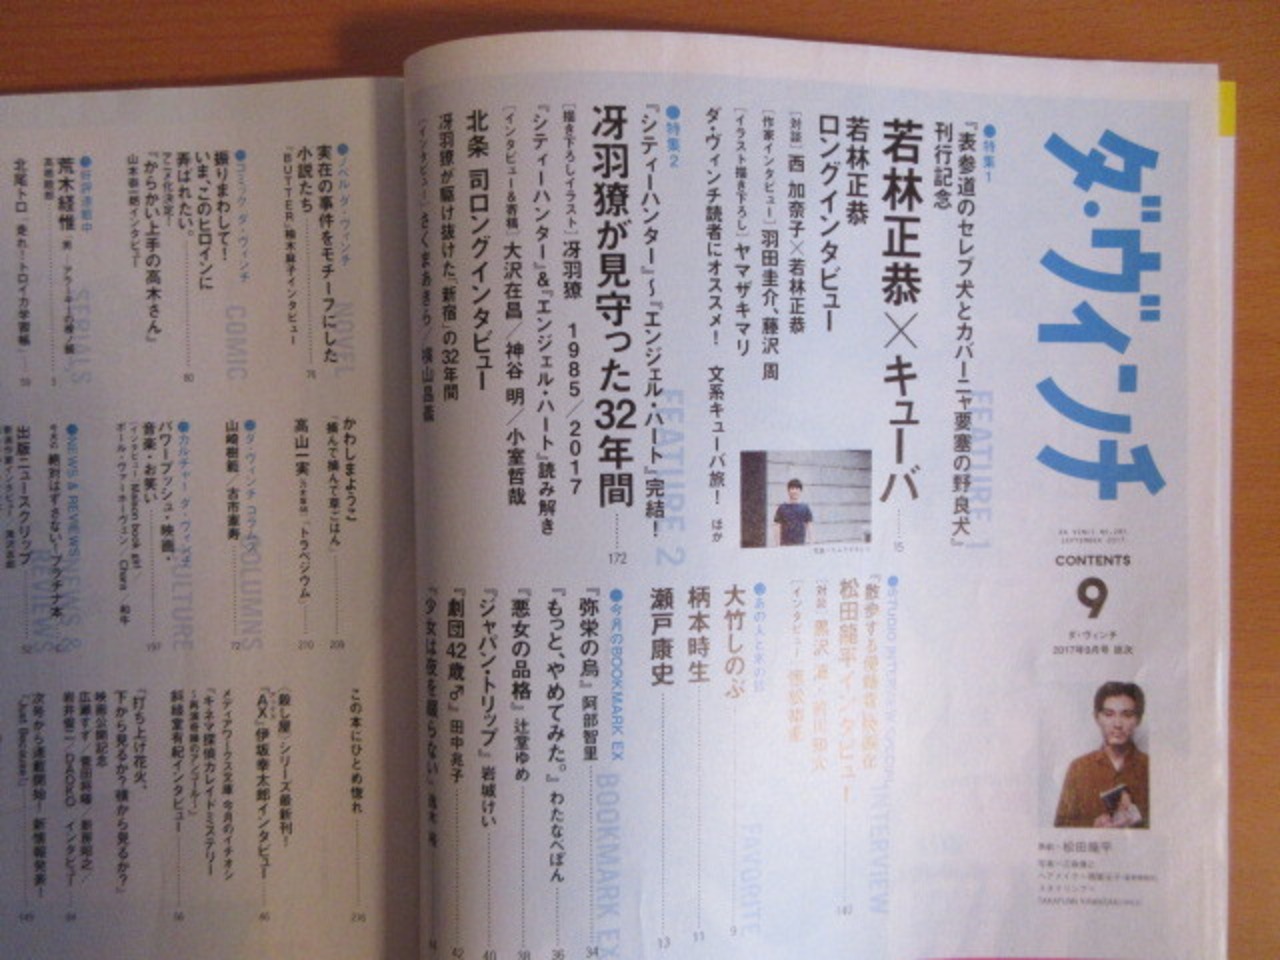 ダ・ヴィンチ
CONTENTS
9
ダ・ヴィンチ
2017年9月号 目次
表紙・松田龍平
●特集1
FEATURE 1
『表参道のセレブ犬とカバーニャ要塞の野良犬』
刊行記念
若林正恭×キューバ……15
若林正恭
ロングインタビュー
[対談] 西 加奈子×若林正恭
[作家インタビュー] 羽田圭介、藤沢 周
[イラスト描き下ろし] ヤマザキマリ
ダ・ヴィンチ読者にオススメ! 文系キューバ旅! ほか
●特集2
FEATURE 2
『シティーハンター』〜『エンジェル・ハート』完結!
冴羽獠が見守った32年間……172
[描き下ろしイラスト] 冴羽獠 1985/2017
『シティーハンター』&『エンジェル・ハート』読み解き
[インタビュー&寄稿] 大沢在昌/神谷 明/小室哲哉
北条 司ロングインタビュー
冴羽獠が駆け抜けた「新宿」の32年間
[インタビュー] さくまあきら/横山昌義
松田龍平 インタビュー!
147
FAVORITE
大竹しのぶ 9
柄本時生 11
瀬戸康史 13
●今月のBOOKMARK EX
BOOKMARK EX
『弥栄の烏』 阿部智里 34
『もっと、やめてみた。』 わたなべぽん 36
『悪女の品格』 辻堂ゆめ 38
『ジャパン・トリップ』 岩城けい 40
『劇団42歳♂』 田中兆子 42
『少女は夜を綴らない』
●ノベル ダ・ヴィンチ
NOVEL
実在の事件をモチーフにした
小説たち 76
『BUTTER』柚木麻子インタビュー
●コミック ダ・ヴィンチ
COMIC
振りまわして!
いま、このヒロインに
弄ばれたい。 80
アニメ化決定!
『からかい上手の高木さん』
山本崇一朗インタビュー
●好評連載中
SERIALS
荒木経惟
北尾トロ 「走れ!トロイカ学習帳」 59
かわしまようこ
「摘んで摘んで草ごはん」 209
高山一実 「トラペジウム」 210
●ダ・ヴィンチ コラムズ
COLUMNS
山崎樹範/古市憲寿 72
●カルチャー ダ・ヴィンチ
CULTURE
パワープッシュ・映画・
音楽・お笑い 197
●NEWS & REVIEWS
NEWS & REVIEWS
今月の「絶対はずさない!プラチナ本」
出版ニュースクリップ 52
この本にひとめ惚れ 236
〈殺し屋〉シリーズ最新刊!
『AX』伊坂幸太郎インタビュー 46
メディアワークス文庫 今月のイチオシ
『キネマ探偵カレイドミステリー
〜再演奇縁のアンコール〜』
斜線堂有紀インタビュー 56
『打ち上げ花火、
下から見るか?横から見るか?』
映画公開記念
広瀬すず/菅田将暉 新房昭之/
岩井俊二/DAOKO インタビュー 84
次号から連載開始! 新情報発表!
『Just Because!』 149